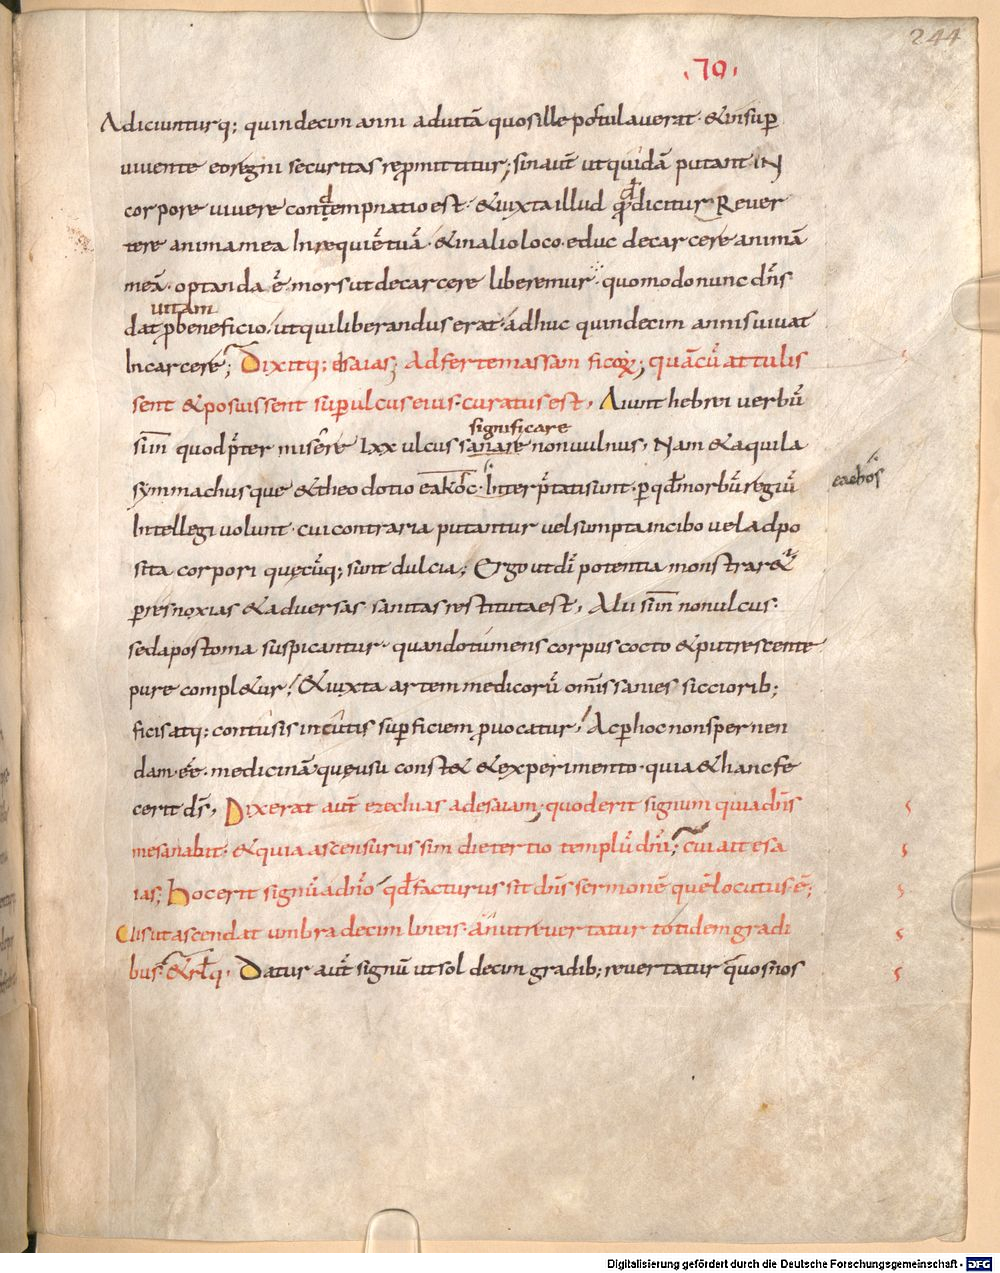 244
.70.
Adiciuntur q; quindecim anni aduitā quos ille postulauerat · & insup
uiuente eo regni securitas repmittitur; sin aut ut quidā putant IN
corpore uiuere contempnatio est · & iuxta illud qd dicitur Reuer
tere anima mea In requiē tuā · & in alio loco · educ de carcere animā
meā · optanda ē mors ut de carcere liberemur · quomodo nunc dns
uitam
dat p beneficio · ut qui liberandus erat · adhuc quindecim annis uiuat
In carcere; Dixitq; esaias; Adferte massam ficoꝝ; quā cū attulis
sent & posuissent sup ulcus eius · curatus est, Aiunt hebrei uerbū
significare
siin quod pter misere lxx ulcus sanare non uulnus, Nam & aquila
symmachusque & theodotio eakoc · Interptati sunt · p qd morbū regiū
eaebos
Intellegi uolunt · cui contraria putantur uel sumpta in cibo uel adpo
sita corpori quęcūq; sunt dulcia; Ergo ut di potentia monstrar&
p res noxias & aduersas · sanitas restituta est, Alii siin non ulcus ·
sed apostoma suspicantur · quando tumens corpus cocto & putrescente
pure compl&ur! & iuxta artem medicorū omis sanies sicciorib;
ficis atq; contusis in cutis supficiem puocatur, Ac p hoc non spernen
dam · eē · medicinā quę usu const& & experimento · quia & hanc fe
cerit ds, Dixerat aut ezechias ad esaiam; quod erit signum quia dns
me sanabit · & quia ascensurus sim die tertio templū dni; cui ait esa
ias; Hoc erit signū a dno qd facturus sit dns sermonē quē locutus ē;
Uis ut ascendat umbra decim lineis · an ut reuertatur totidem gradi
bus & rlq · Datur aut signū ut sol decim gradib; reuertatur quos nos
Digitalisierung gefördert durch die Deutsche Forschungsgemeinschaft - DFG